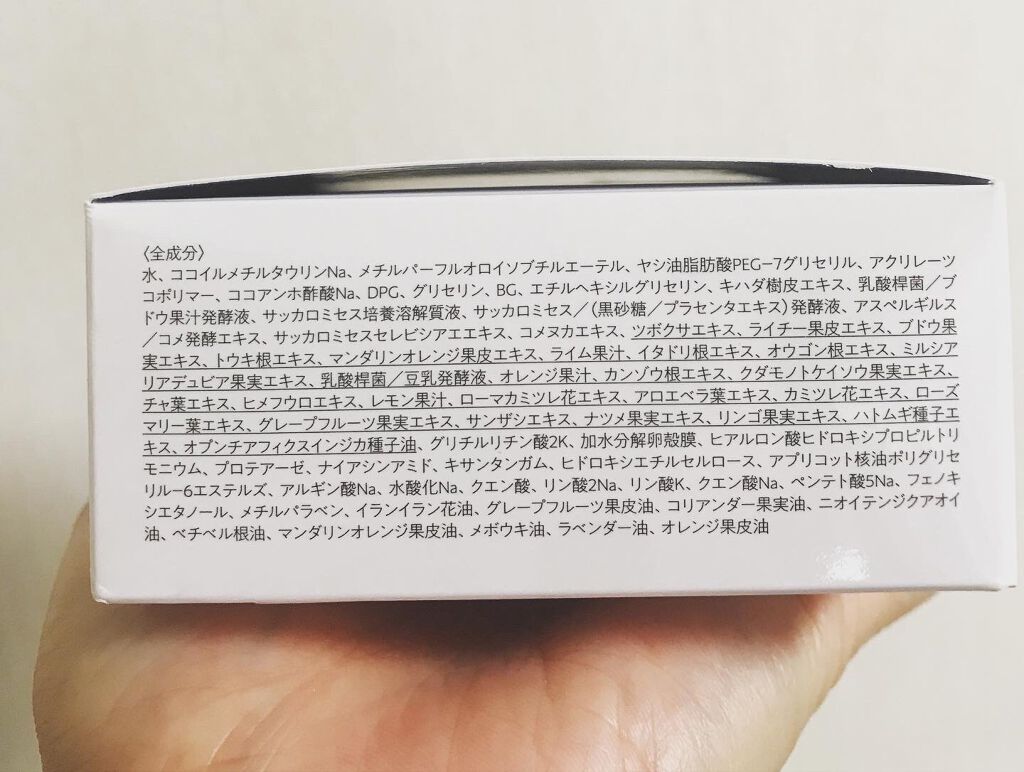 〈全成分〉
水、ココイルメチルタウリンNa、メチルパーフルオロイソブチルエーテル、ヤシ油脂肪酸PEG−7グリセリル、アクリレーツ
コポリマー、ココアンホ酢酸Na、DPG、グリセリン、BG、エチルヘキシルグリセリン、キハダ樹皮エキス、乳酸桿菌／ブ
ドウ果汁発酵液、サッカロミセス培養溶解質液、サッカロミセス／（黒砂糖／プラセンタエキス）発酵液、アスペルギルス
／コメ発酵エキス、サッカロミセスセレビシアエエキス、コメヌカエキス、ツボクサエキス、ライチー果皮エキス、ブドウ果
実エキス、トウキ根エキス、マンダリンオレンジ果皮エキス、ライム果汁、イタドリ根エキス、オウゴン根エキス、ミルシア
リアデュビア果実エキス、乳酸桿菌／豆乳発酵液、オレンジ果汁、カンゾウ根エキス、クダモノトケイソウ果実エキス、
チャ葉エキス、ヒメフウロエキス、レモン果汁、ローマカミツレ花エキス、アロエベラ葉エキス、カミツレ花エキス、ローズ
マリー葉エキス、グレープフルーツ果実エキス、サンザシエキス、ナツメ果実エキス、リンゴ果実エキス、ハトムギ種子エ
キス、オプンチアフィクスインジカ種子油、グリチルリチン酸2K、加水分解卵殻膜、ヒアルロン酸ヒドロキシプロピルトリ
モニウム、プロテアーゼ、ナイアシンアミド、キサンタンガム、ヒドロキシエチルセルロース、アプリコット核油ポリグリセ
リル−6エステルズ、アルギン酸Na、水酸化Na、クエン酸、リン酸2Na、リン酸K、クエン酸Na、ペンテト酸5Na、フェノキ
シエタノール、メチルパラベン、イランイラン花油、グレープフルーツ果皮油、コリアンダー果実油、ニオイテンジクアオイ
油、ベチベル根油、マンダリンオレンジ果皮油、メボウキ油、ラベンダー油、オレンジ果皮油